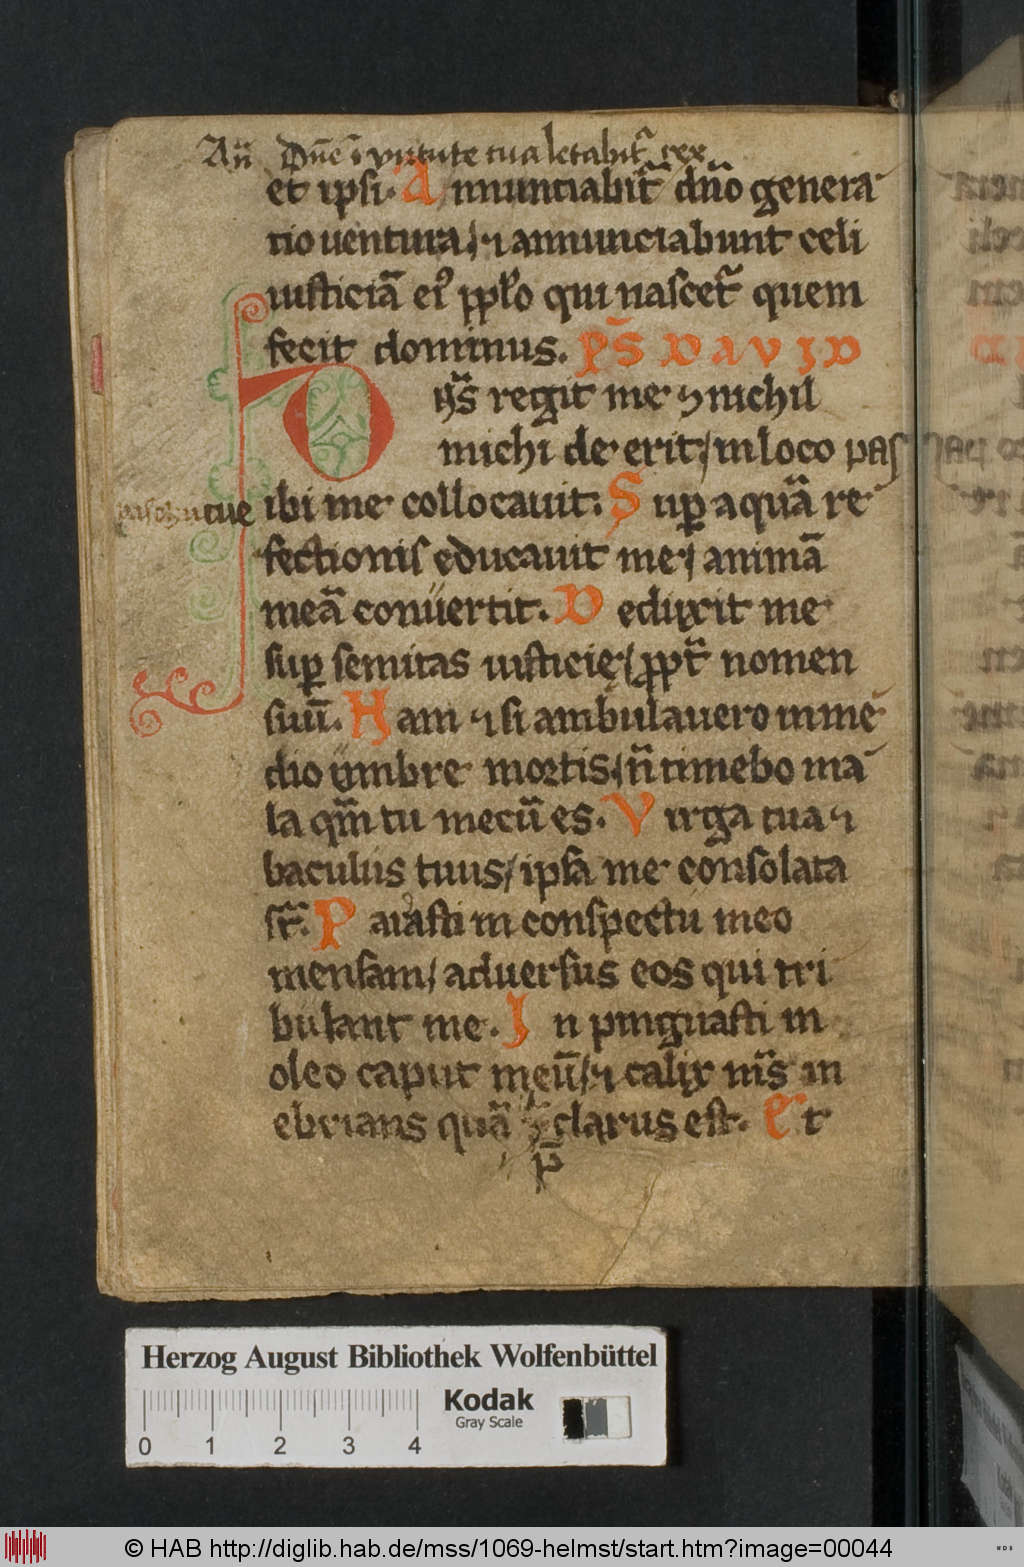 Añ Dñe ī virtute tua letabit᷑ rex
et ipsi. Annunciabit᷑ dño genera
tio uentura / ⁊ annunciabunt celi
iusticiā ei᷒ ppło qui nascet᷑ quem
fecit dominus. P̄S DAVID
D ñs regit me ⁊ nichil
michi de erit / in loco pas
paschu cue ibi me collocauit. Sup aquā re
fectionis educauit me / animā
meā conuertit. Deduxit me
sup semitas iusticię / ppt᷑ nomen
suū. Nam ⁊ si ambulauero in me
dio umbre mortis / ñ timebo ma
la qm̄ tu mecū es. Virga tua ⁊
baculus tuus / ipsa me consolata
st̄. Parasti in conspectu meo
mensam / aduersus eos qui tri
bulant me. Inpinguasti in
oleo caput meū / ⁊ calix m̄s in
ebrians quā clarus est. Et
p̄
Herzog August Bibliothek Wolfenbüttel
Kodak
Gray Scale
0 1 2 3 4
© HAB http://diglib.hab.de/mss/1069-helmst/start.htm?image=00044